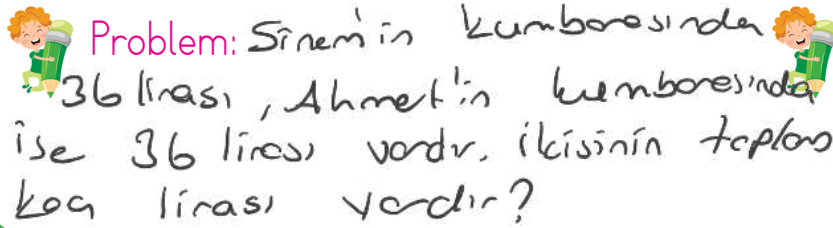 Problem: Sinem'in kumbarasında
36 lirası, Ahmet'in kumbarasında
ise 36 lirası vardır. ikisinin toplam
kaç lirası vardır?